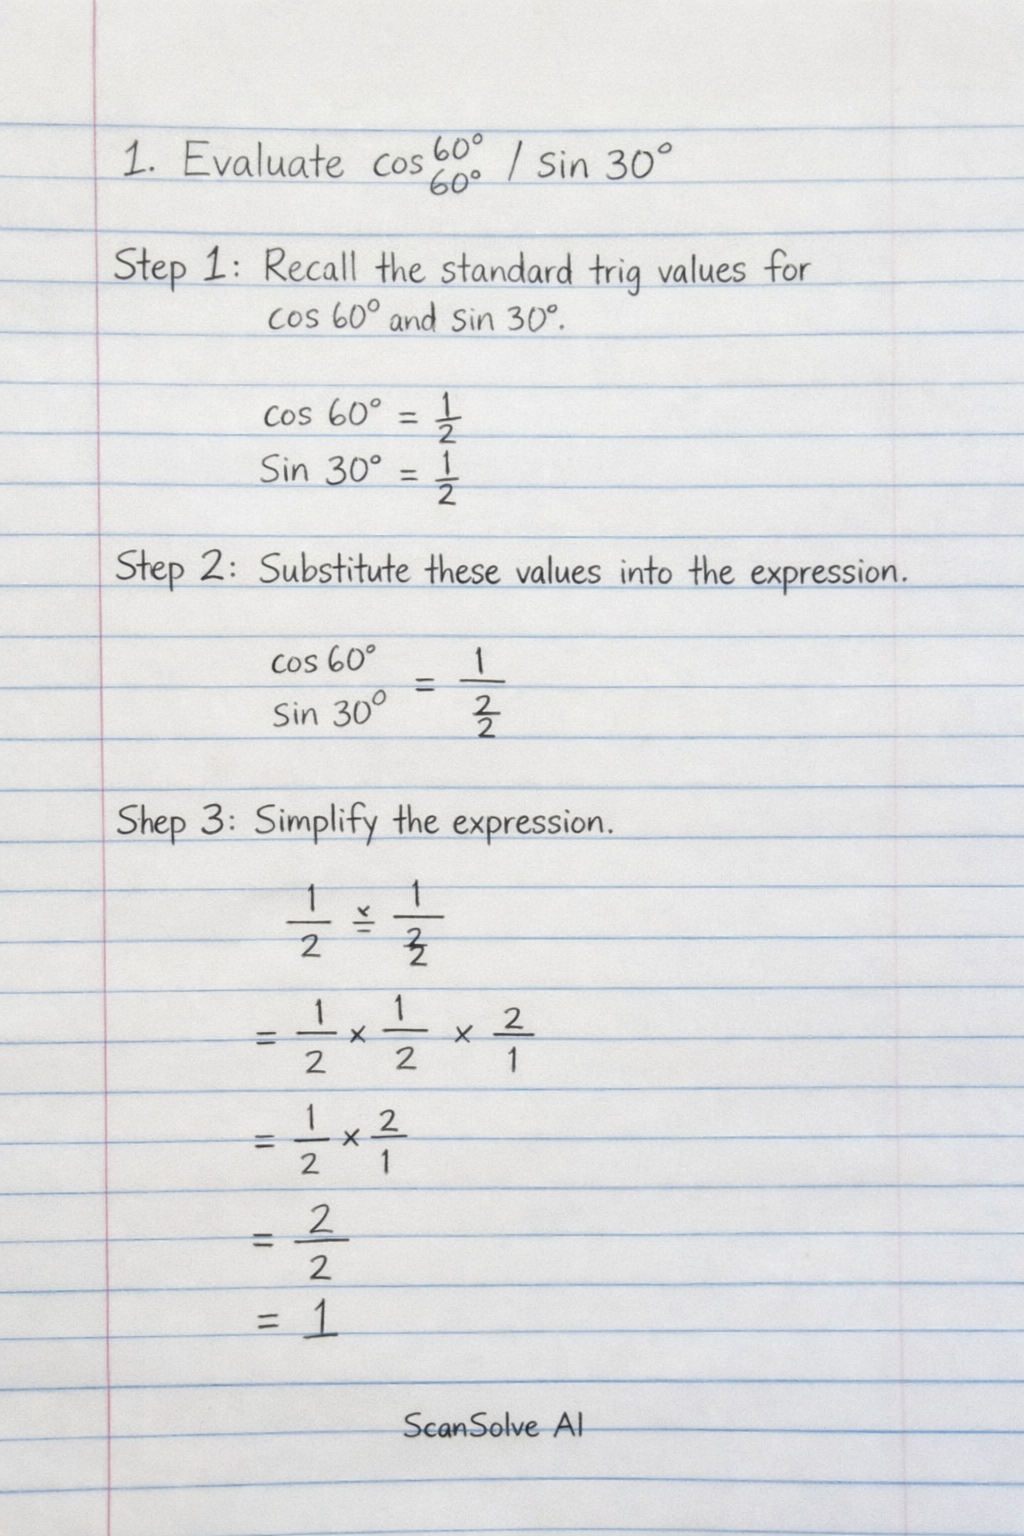 1. Evaluate cos 60° 60° / sin 30°
Step 1: Recall the standard trig values for
cos 60° and sin 30°.
cos 60° = 1/2
Sin 30° = 1/2
Step 2: Substitute these values into the expression.
cos 60°
sin 30° = 1/2/2
Shep 3: Simplify the expression.
1/2 × = 1/2/2
= 1/2 × 1/2 × 2/1
= 1/2 × 2/1
= 2/2
= 1
ScanSolve AI